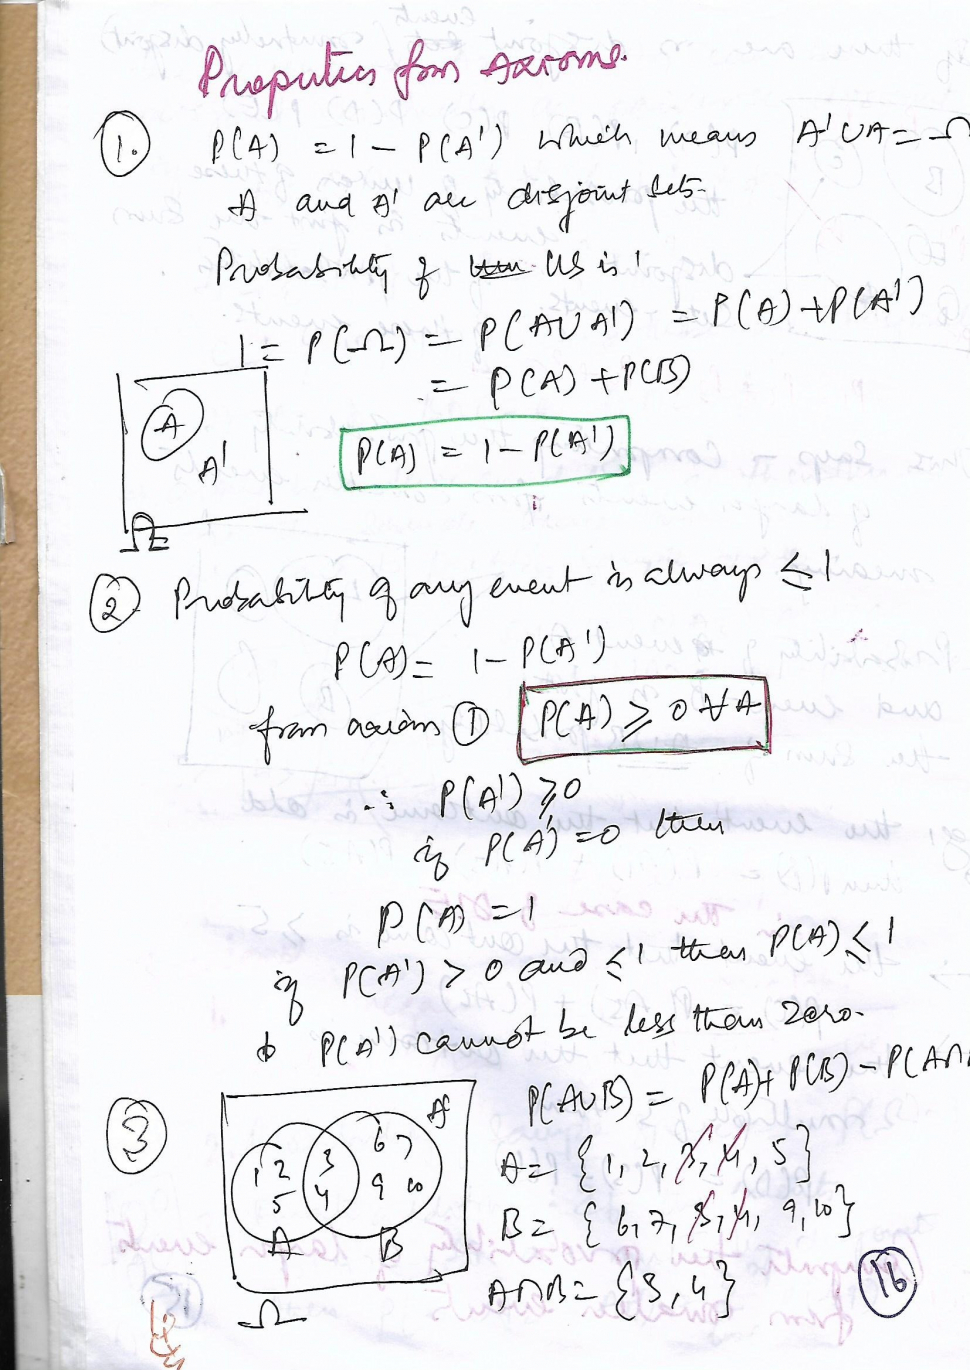 Properties from Axioms.
1. P(A) = 1 - P(A') which means A' ∪ A = Ω
A and A' are disjoint sets.
Probability of US is 1
1 = P(Ω) = P(A∪A') = P(A) + P(A')
= P(A) + P(B)
A
A'
P(A) = 1 - P(A')
Ω
2 Probability of any event is always ≤ 1
P(A) = 1 - P(A')
from axiom ① P(A) ≥ 0 ∀ A
∴ P(A') ≥ 0
if P(A') = 0 then
P(A) = 1
if P(A') > 0 and ≤ 1 then P(A) ≤ 1
P(A') cannot be less than zero.
3 P(A∪B) = P(A) + P(B) - P(A∩
1 2 3 6 7
5 4 9 10
A B
Ω
A = {1, 2, 3, 4, 5}
B = {6, 7, 3, 4, 9, 10}
A∩B = {3, 4}
16